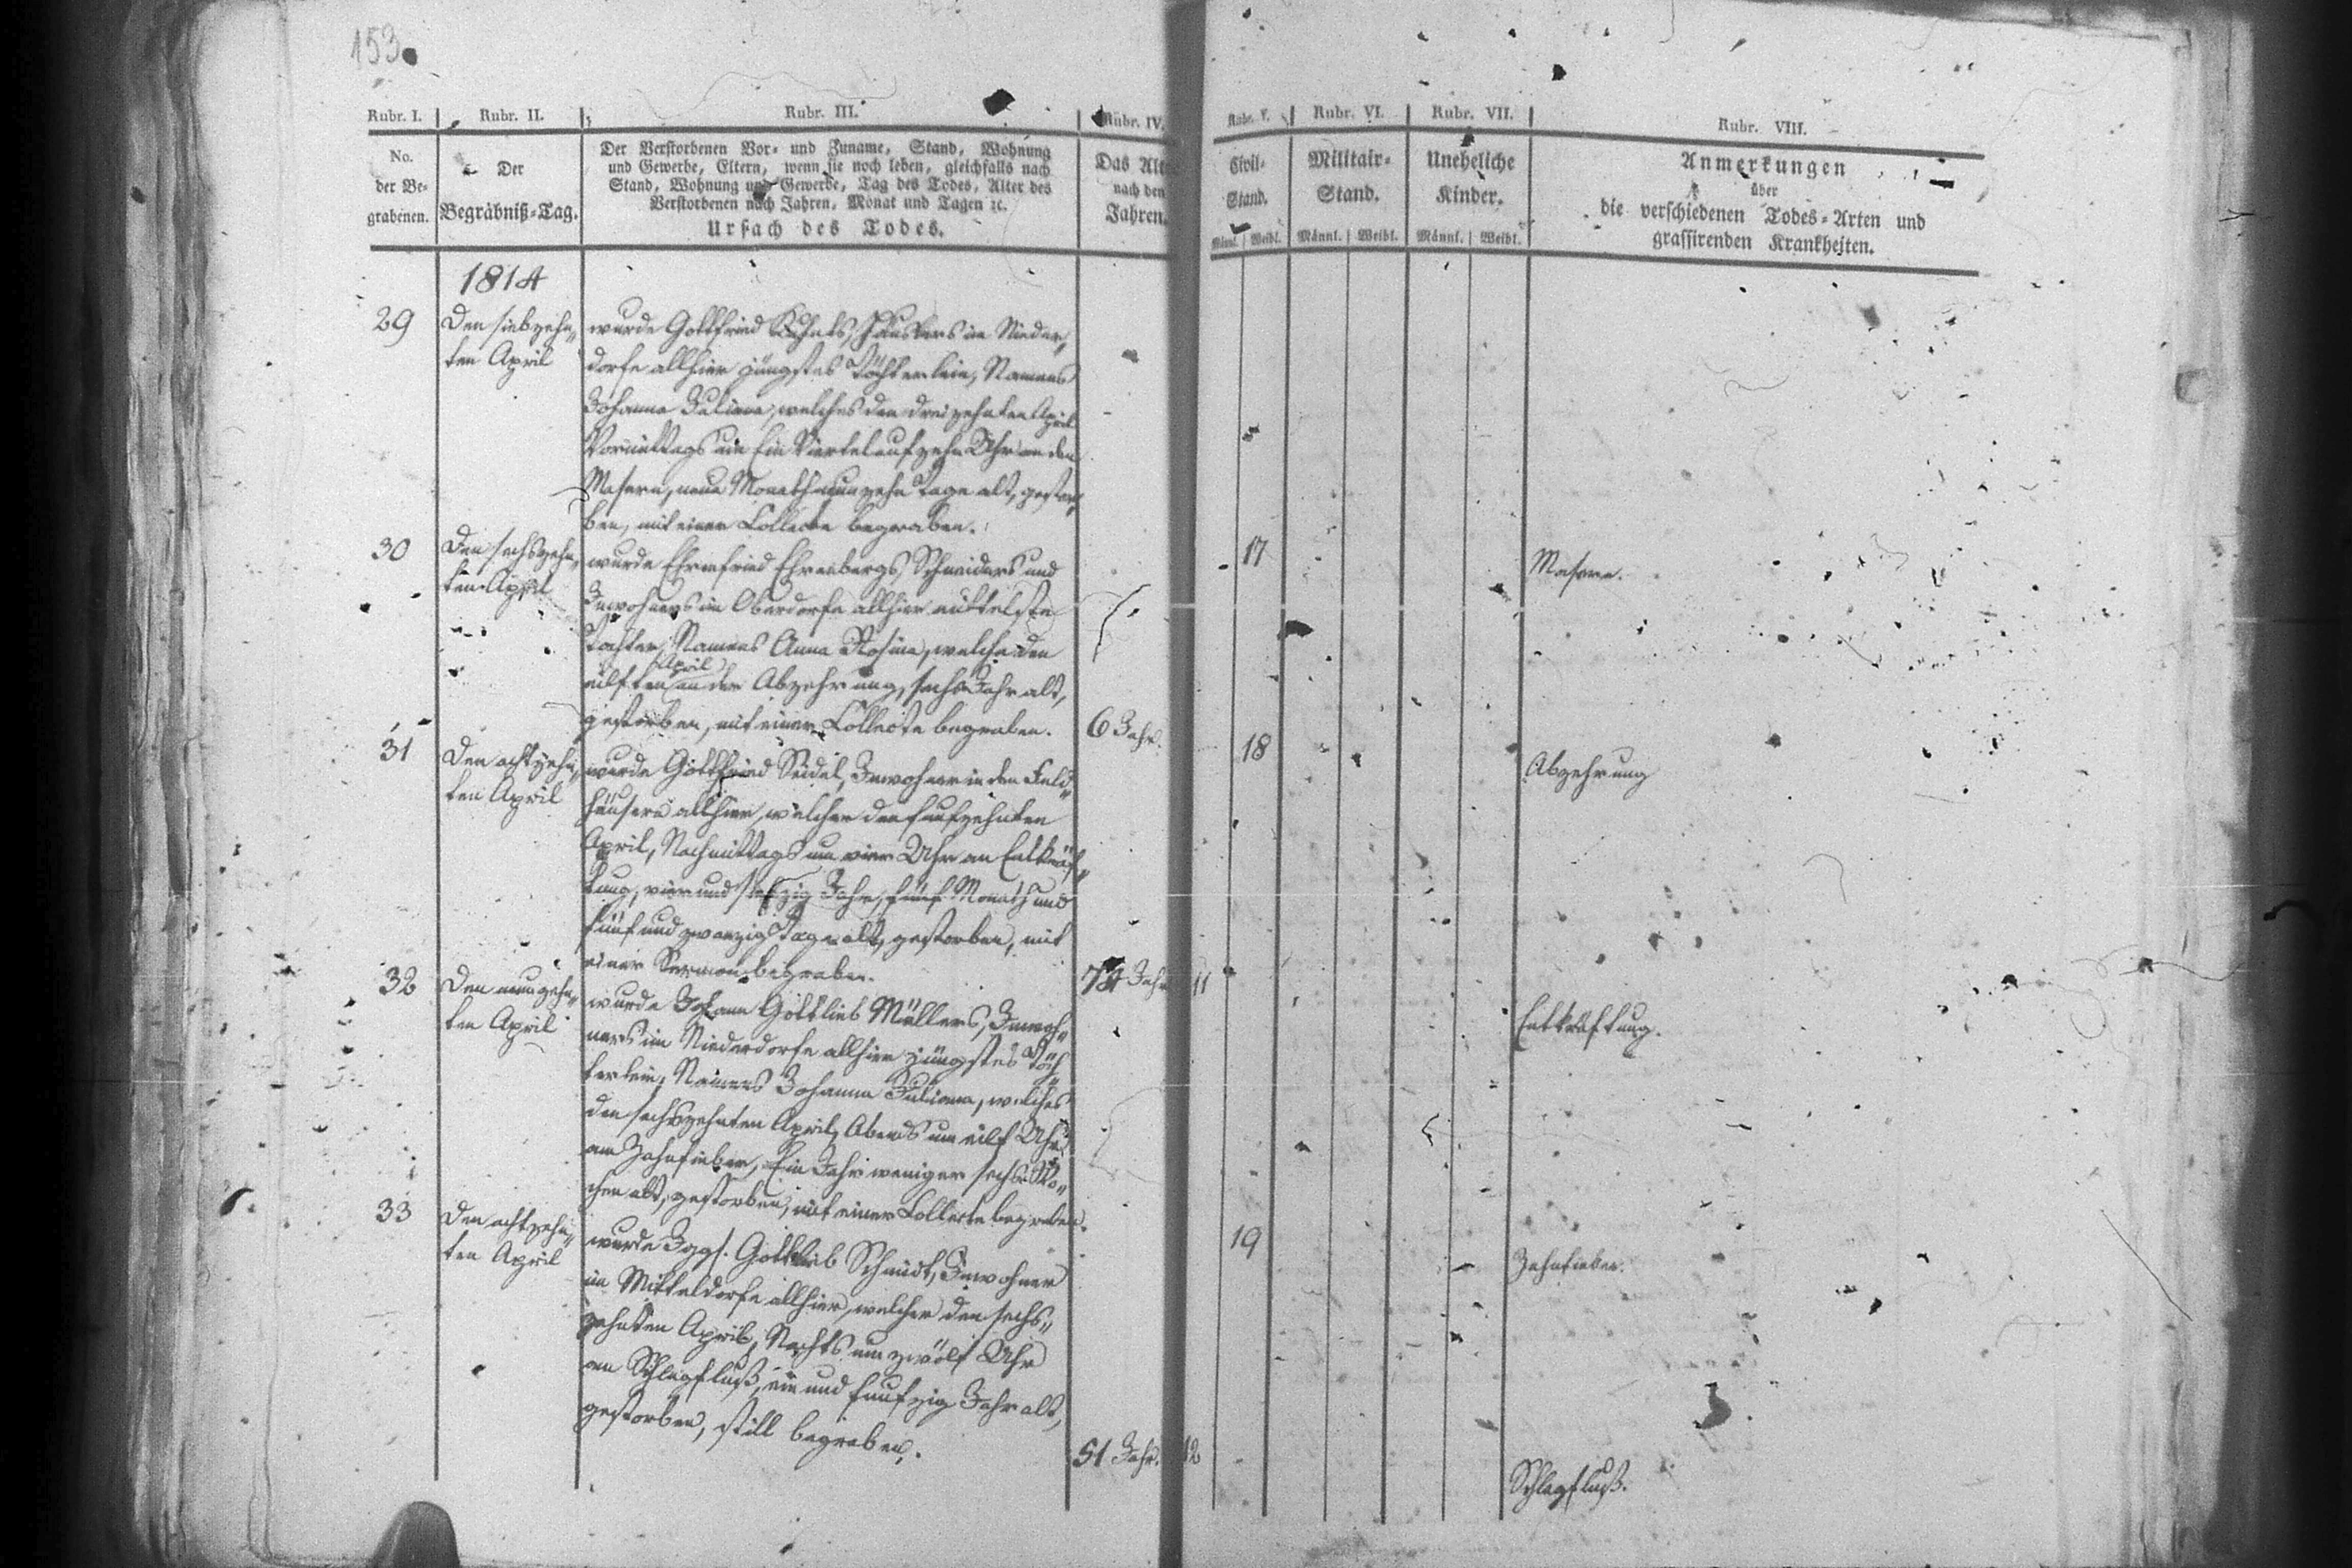 153.
Rubr. I. Rubr. II. Rubr. III. Rubr. IV. Rubr. V. Rubr. VI. Rubr. VII. Rubr. VIII.
No. der Begrabenen.
Der Begräbniß-Tag.
Der Verstorbenen Vor- und Zuname, Stand, Wohnung
und Gewerbe, Eltern, wenn sie noch leben, gleichfalls nach
Stand, Wohnung und Gewerbe, Tag des Todes, Alter des
Verstorbenen nach Jahren, Monat und Tagen ꝛc.
Ursach des Todes.
Das Alt
nach den
Jahren.
Civil-
Stand.
Männl. Weibl.
Militair-
Stand.
Männl. Weibl.
Uneheliche
Kinder.
Männl. Weibl.
Anmerkungen
über
die verschiedenen Todes-Arten und
grassirenden Krankheiten.
1814
29
Den siebzehn„
ten April
wurde Gottfried Häuslers im Nieder„
dorfe allhier jüngstes Töchterlein, Namens
Johanne Juliane, welches den dreizehnten April
Vormittags um Ein Viertel auf zehn Uhr an den
Masern, neun Monath neunzehn Tage alt, gestor„
ben, mit einer Collecte begraben.
17
Masern.
30
Den sechszehn„
ten April
wurde Ehrenfried Ehrenbergs, Schneiders und
Inwohners im Oberdorfe allhier mittelste
Tochter, Namens Anna Rosina, welche den
eilften April an der Abzehrung, sechs Jahr alt,
gestorben, mit einer Collecte begraben.
6 Jahr.
18
Abzehrung
31
Den achtzehn„
ten April
wurde Gottfried Seidel, Inwohner in den Feld„
häusern allhier, welcher den funfzehnten
April, Nachmittags um vier Uhr an Entkräf„
tung, vier und siebzig Jahr, fünf Monath und
fünf und zwanzig Tage alt, gestorben, mit
einer Sermon begraben.
74 Jahr
11
Entkräftung.
32
Den neunzehn„
ten April
wurde Johann Gottlieb Müllers, Inwoh„
ners im Niederdorfe allhier jüngstes Töch„
terlein, Namens Johanna Juliana, welches
den sechszehnten April, Abends um eilf Uhr
am Zahnfieber, Ein Jahr weniger sechs Wo„
chen alt, gestorben, mit einer Collecte begraben.
19
Zahnfieber.
33
Den achtzehn„
ten April
wurde Jggs. Gottlieb Schmidt, Inwohner
im Mitteldorfe allhier, welcher den sechs„
zehnten April, Nachts um zwölf Uhr
an Schlagfluß, ein und funfzig Jahr alt,
gestorben, still begraben.
51 Jahr.
12
Schlagfluß.